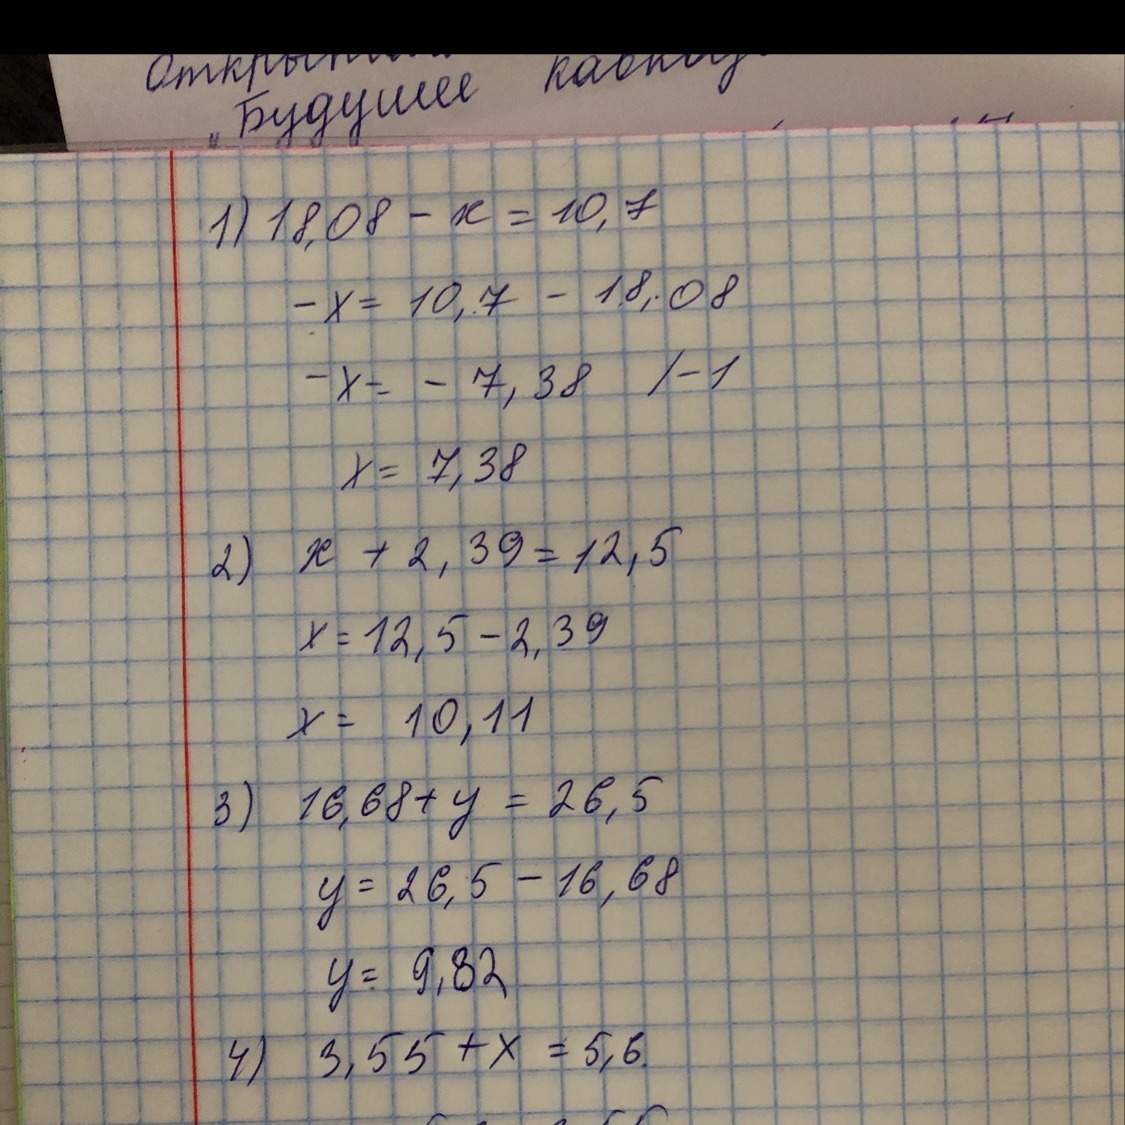 „Будущее
1) 18,08 - x = 10,7
-x = 10,7 - 18,08
-x = - 7,38 /-1
x = 7,38
2) x + 2,39 = 12,5
x = 12,5 - 2,39
x = 10,11
3) 16,68 + y = 26,5
y = 26,5 - 16,68
y = 9,82
4) 3,55 + x = 5,6